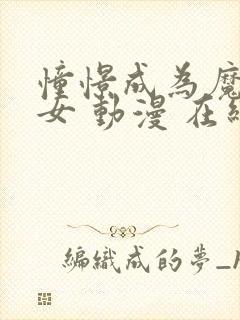 憧憬成為魔
女動漫在線
編織成的夢_